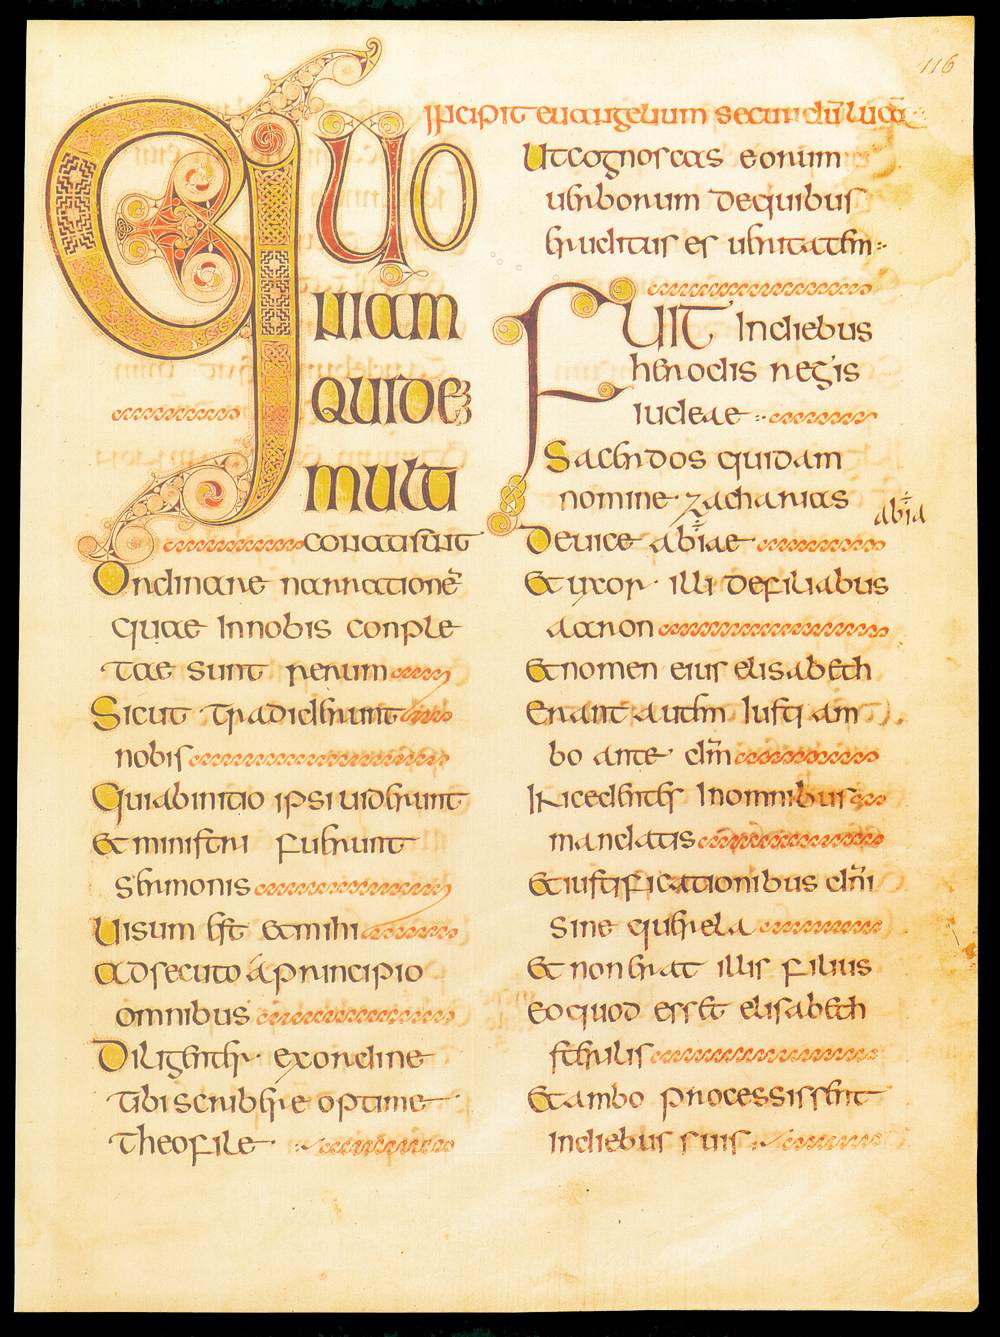 116
Incipit euangelium secundū lucā
Quo
niam
quidē
multi
conatisunt
Ordinare narrationē
quae Innobis conple
tae sunt rerum
Sicut tradiderunt
nobis
Quiabinitio ipsi uiderunt
Et ministri fuerunt
sermonis
Uisum est etmihi
adsecuto á principio
omnibus
Diligenter exordine
tibi scribere optime
theofile
Utcognoscas eorum
uerborum dequibus
eruditus es ueritatem
Fuit Indiebus
herodis regis
iudeae
Sacerdos quidam
nomine zacharias
abia
Deuice abiae
Et uxor illi defiliabus
aaron
Et nomen eius elisabeth
Erant autem Iusti am
bo ante dm̄
Incedentes Inomnibus
mandatis
Et iustificationibus dnī
sine querela
Et non erat illis filius
Eo quod esset elisabeth
sterilis
Et ambo processissent
Indiebus suis